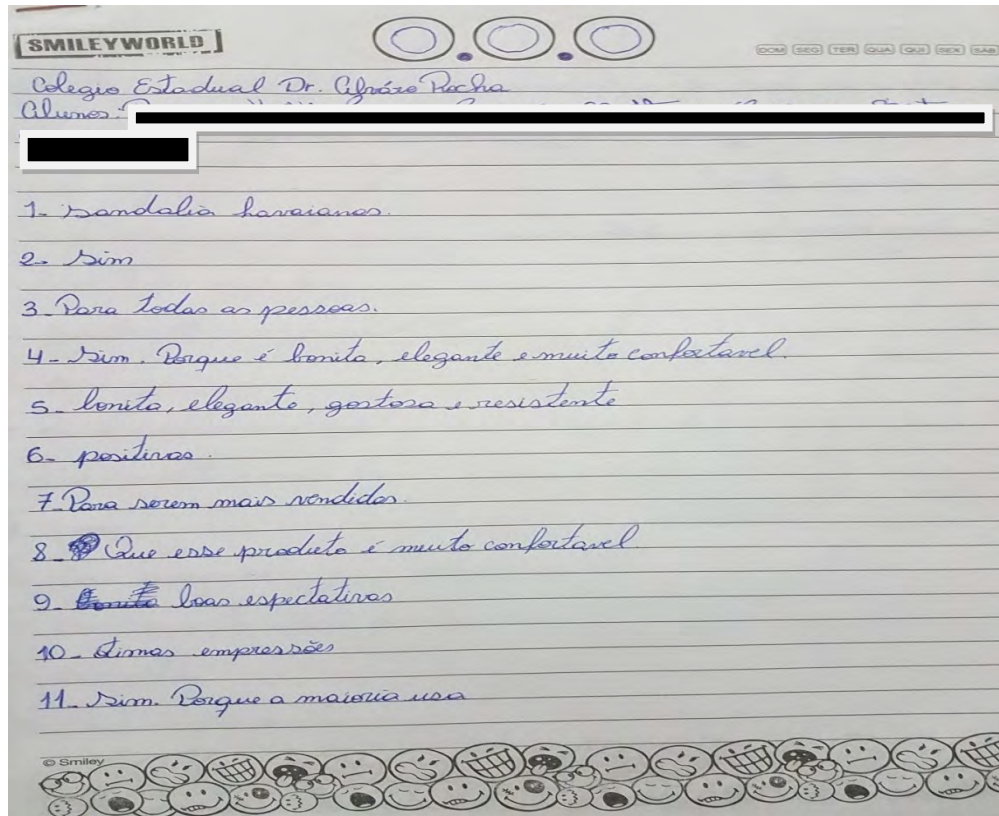 SMILEYWORLD
DOM SEG TER QUA QUI SEX SÁB
Colegio Estadual Dr. Alváro Rocha
Alunos:
1- Sandalia havaianas.
2- Sim
3- Para todas as pessoas.
4- Sim. Porque é bonita, elegante e muito confortavel.
5- bonita, elegante, gostosa e resistente
6- positivas.
7- Para serem mais vendidas.
8- Que esse produto é muito confortavel
9- boas espectativas
10- ótimas empressões
11- Sim. Porque a maioria usa
© Smiley